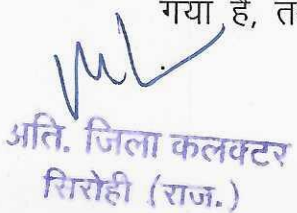 गया है, त
अति. जिला कलक्टर
सिरोही (राज.)